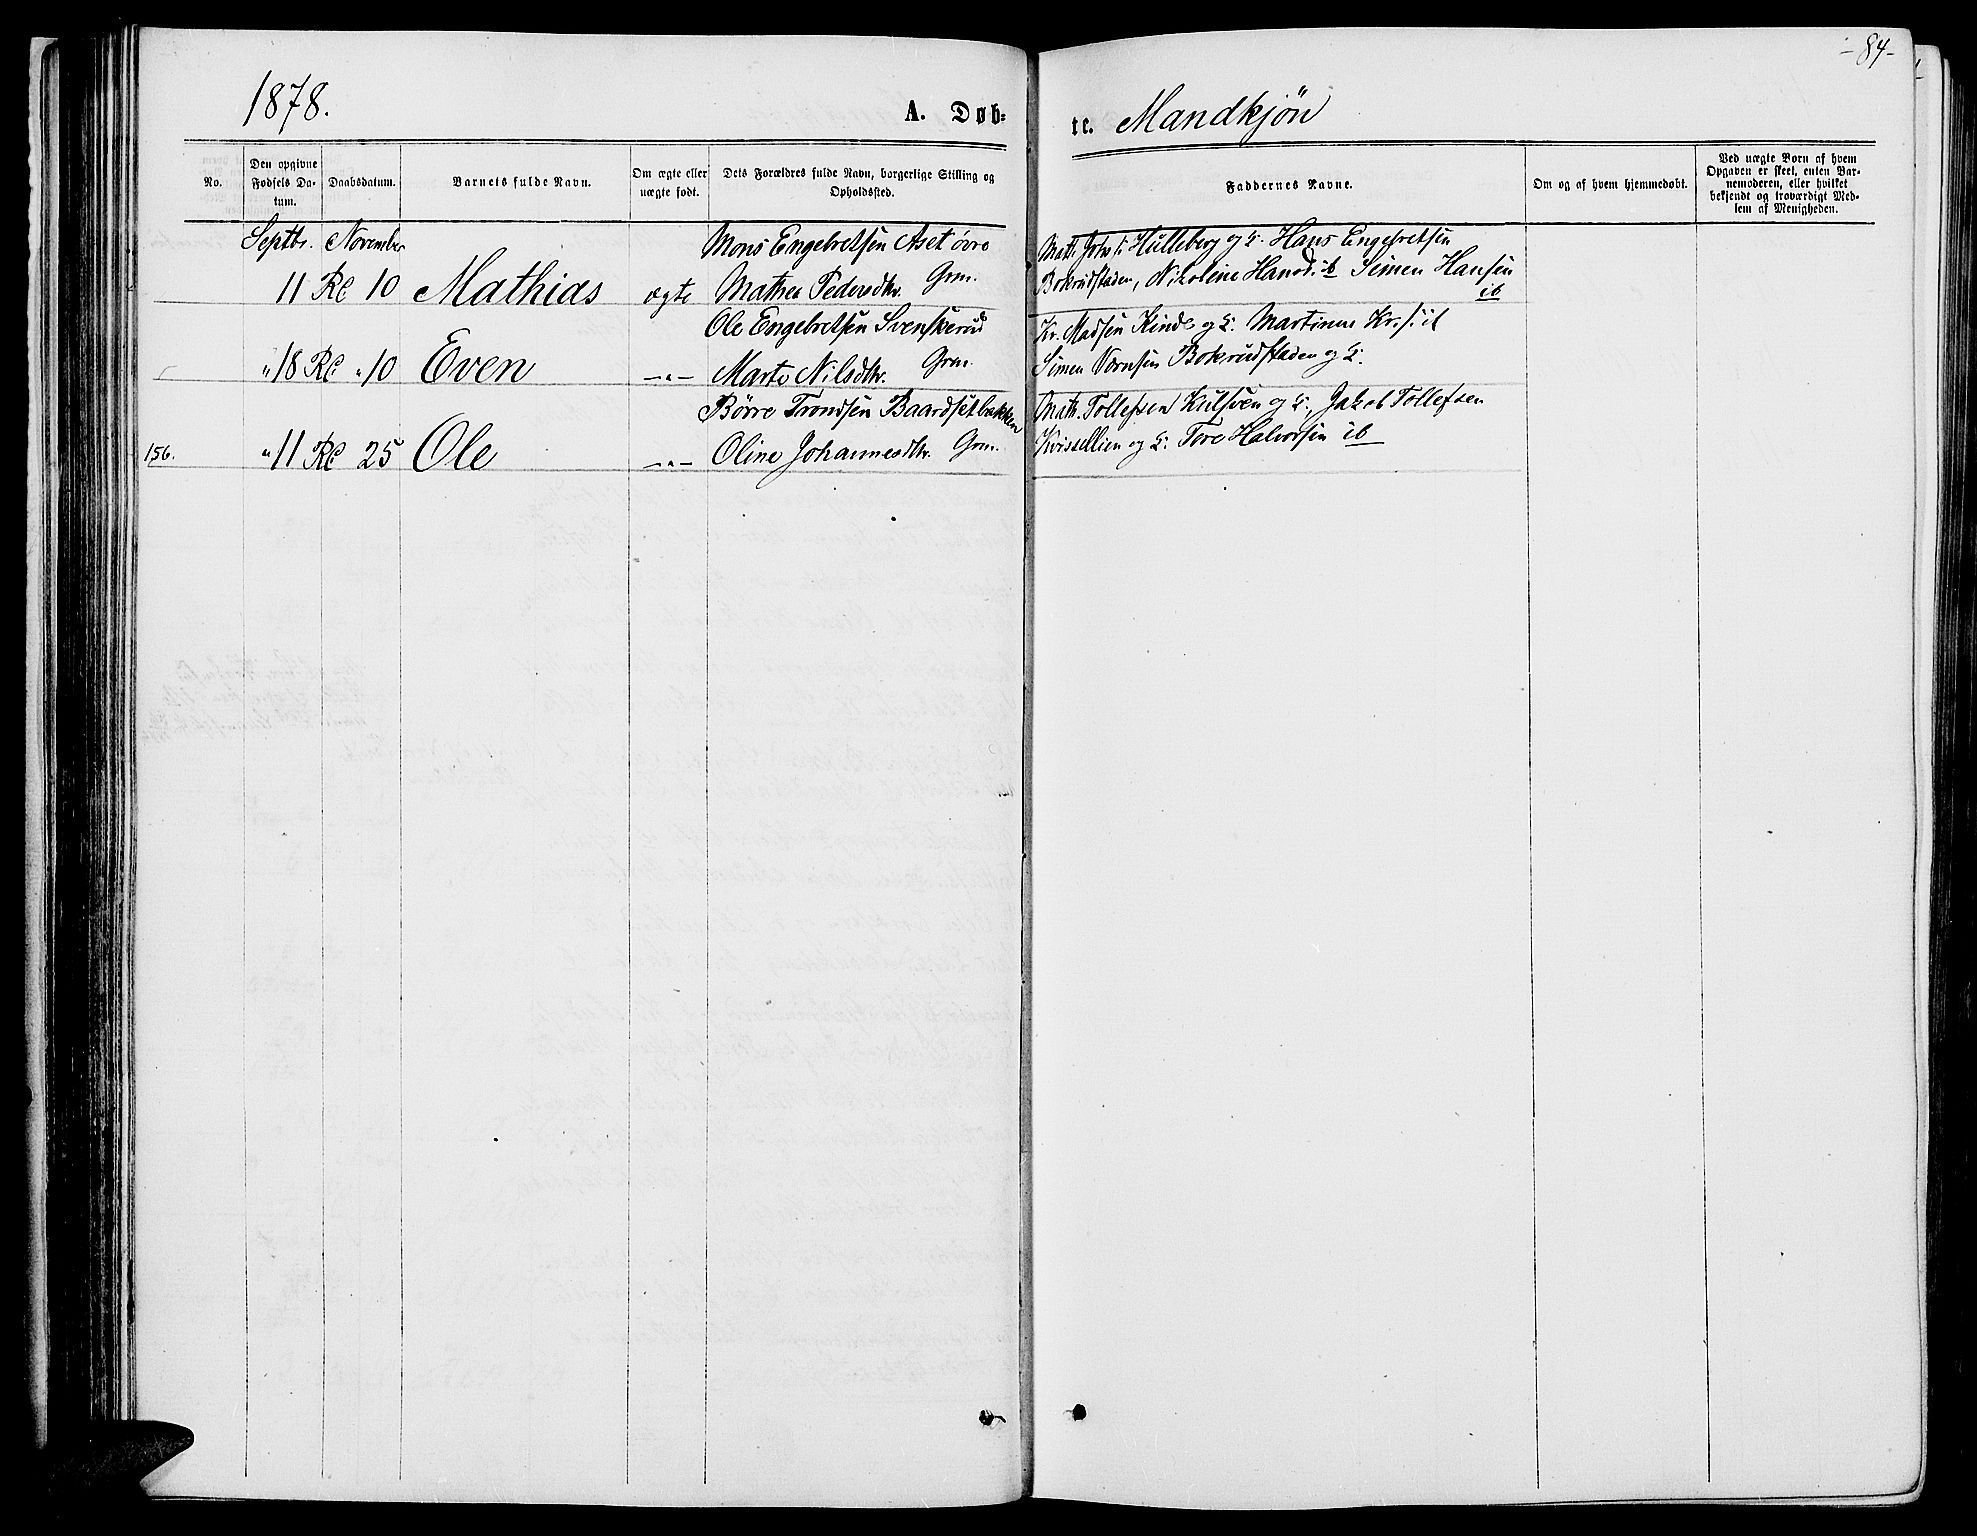 -84-
1878. A. Døb= te. Mandkjön
No.
Den opgivne Fødsels Da-
tum.
Daabsdatum.
Barnets fulde Navn.
Om ægte eller
uægte født.
Dets Forældres fulde Navn, borgerlige Stilling og
Opholdssted.
Faddernes Navne.
Om og af hvem hjemmedøbt.
Ved uægte Born af hvem
Opgaven er skeet, enten Bar-
nemoderen, eller hvilket
bekjendt og troværdigt Med-
lem af Menigheden.
Septbr. November Mons Engebretsen Aset övre Math. Johs s. Hulleberg og Hans Engebretsen
11 10 Mathias ægte Mathea Pedersdtr. Grm. Bokrudstaden, Nikoline Hansd. ib Simen Hansen
ib
Ole Engebretsen Svenskerud Kr. Madsen Kinde og Martinus Kr. s. ib
" 18 " 10 Even -"- Marte Nilsdtr. Grm. Simen Bokrudstaden og
Börre Trondsen Baardsetbakken Math. Tollefsen Kulsven og Jakob Tollefsen
156. " 11 25 Ole -"- Oline Johannesdtr. Grm. og Tore Halvorsen ib